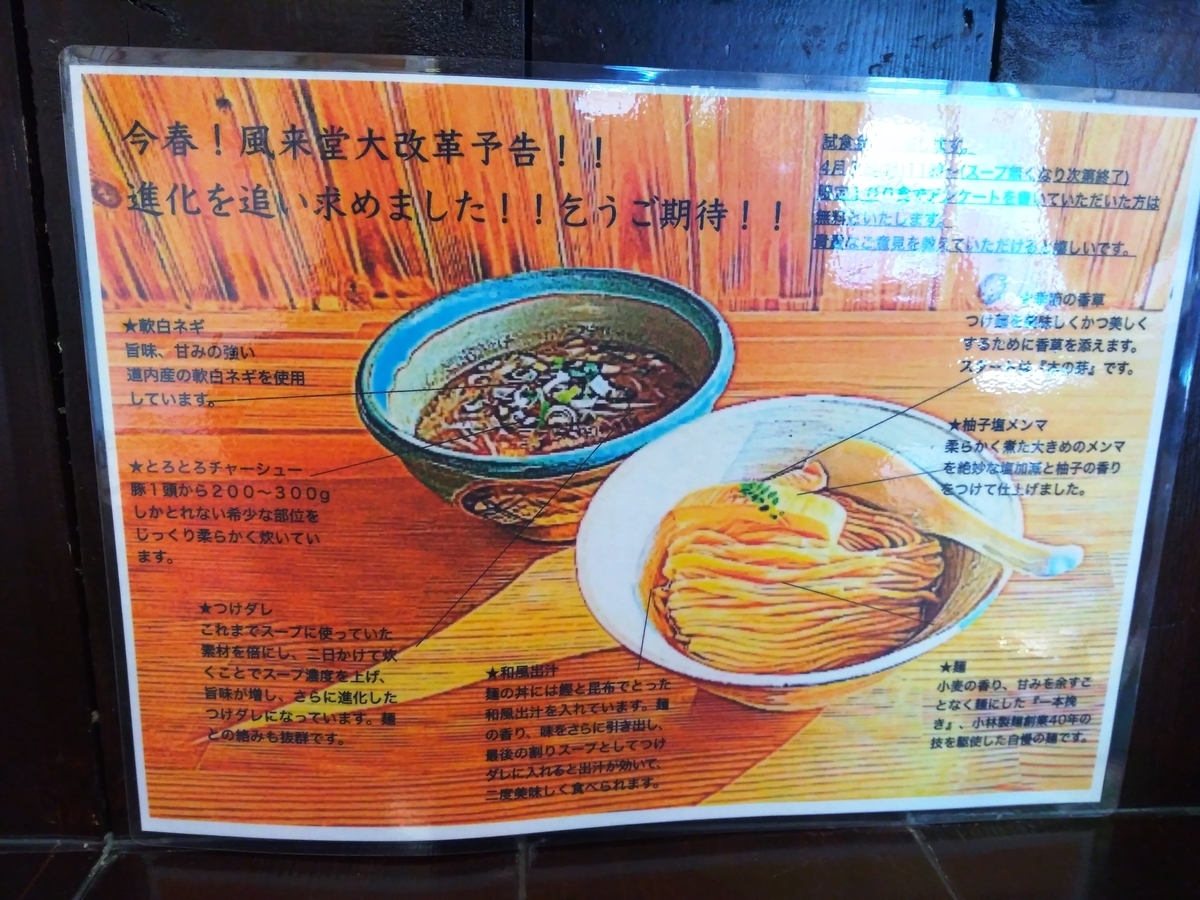 今春！風来堂大改革予告！！
進化を追い求めました！！乞うご期待！！
試食
4月 (スープ無くなり次第終了)
アンケートを書いていただいた方は
無料といたします。
貴重なご意見を教えていただけると嬉しいです。
★軟白ネギ
旨味、甘みの強い
道内産の軟白ネギを使用
しています。
★とろとろチャーシュー
豚1頭から200～300g
しかとれない希少な部位を
じっくり柔らかく炊いてい
ます。
★つけダレ
これまでスープに使っていた
素材を倍にし、二日かけて炊
くことでスープ濃度を上げ、
旨味が増し、さらに進化した
つけダレになっています。麺
との絡みも抜群です。
★和風出汁
麺の丼には鰹と昆布でとった
和風出汁を入れています。麺
の香り、味をさらに引き出し、
最後の割りスープとしてつけ
ダレに入れると出汁が効いて、
二度美味しく食べられます。
季節の香草
つけ麺を美味しくかつ美しく
するために香草を添えます。
スタートは『木の芽』です。
★柚子塩メンマ
柔らかく煮た大きめのメンマ
を絶妙な塩加減と柚子の香り
をつけて仕上げました。
★麺
小麦の香り、甘みを余すこ
となく麺にした『一本挽
き』、小林製麺創業40年の
技を駆使した自慢の麺です。